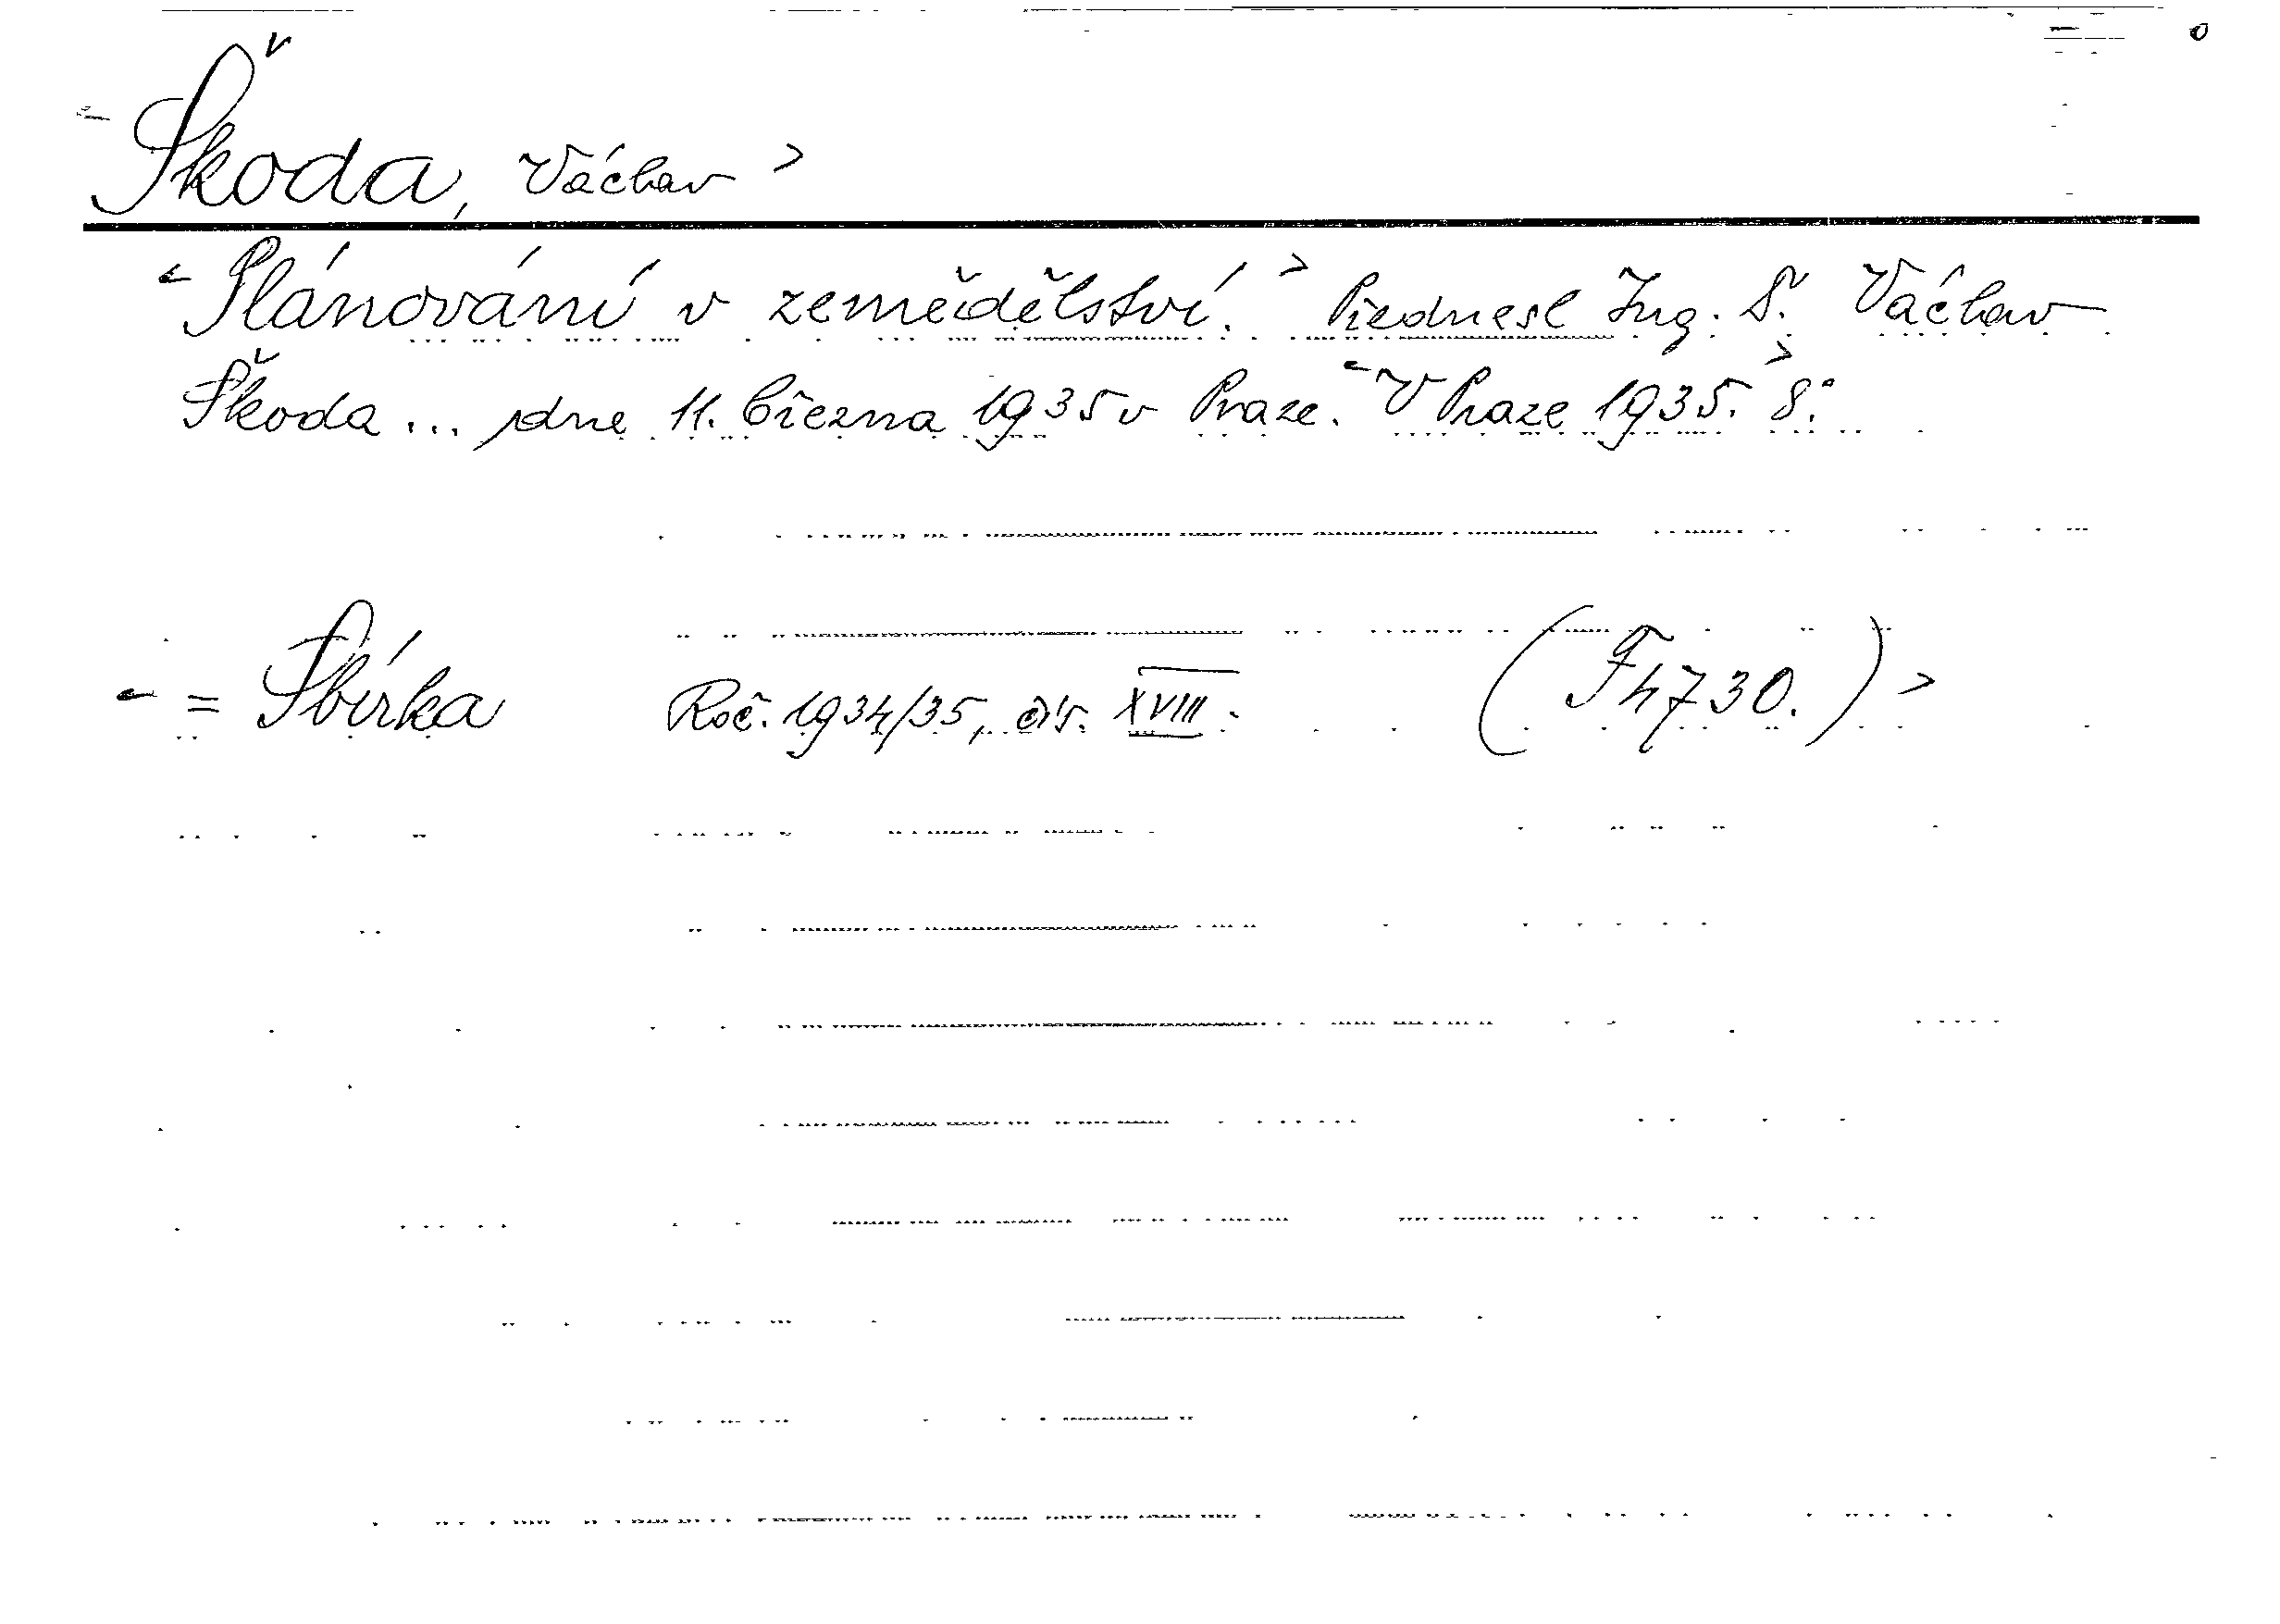 Škoda, Václav >
< Plánování v zemědělství. > Přednesl Ing. Š. Václav
Škoda ... dne 11. března 1935 v Praze. < V Praze 1935. > 8°.
< = Sbírka Roč. 1934/35, čís. XVIII. (Fh 730.) >